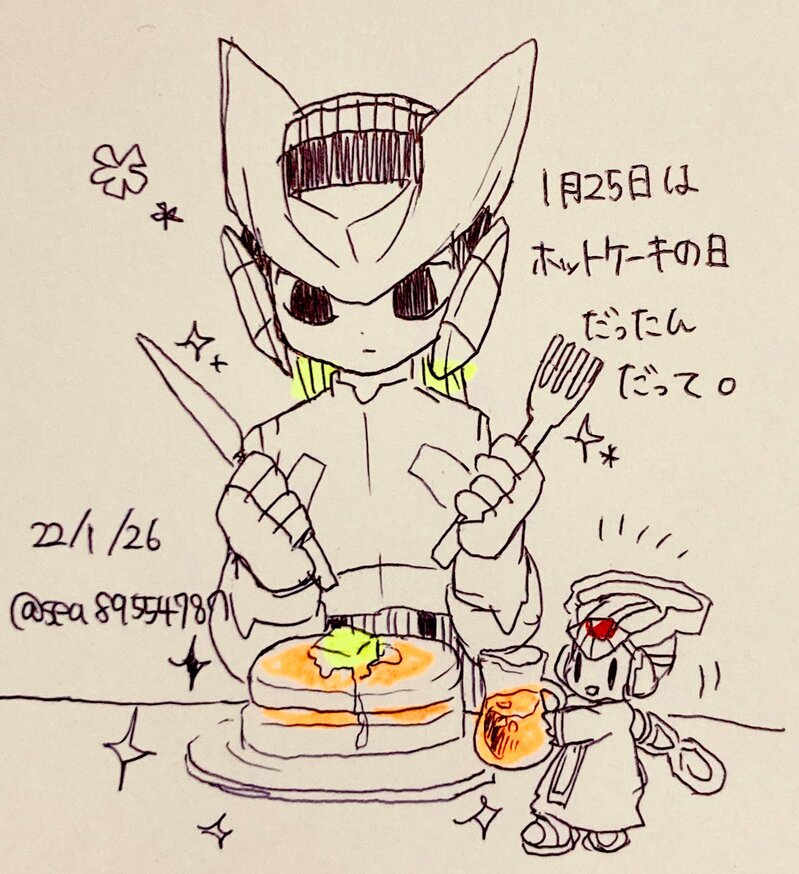 1月25日は
ホットケーキの日
だったん
だって。
22/1/26
@sea89554787